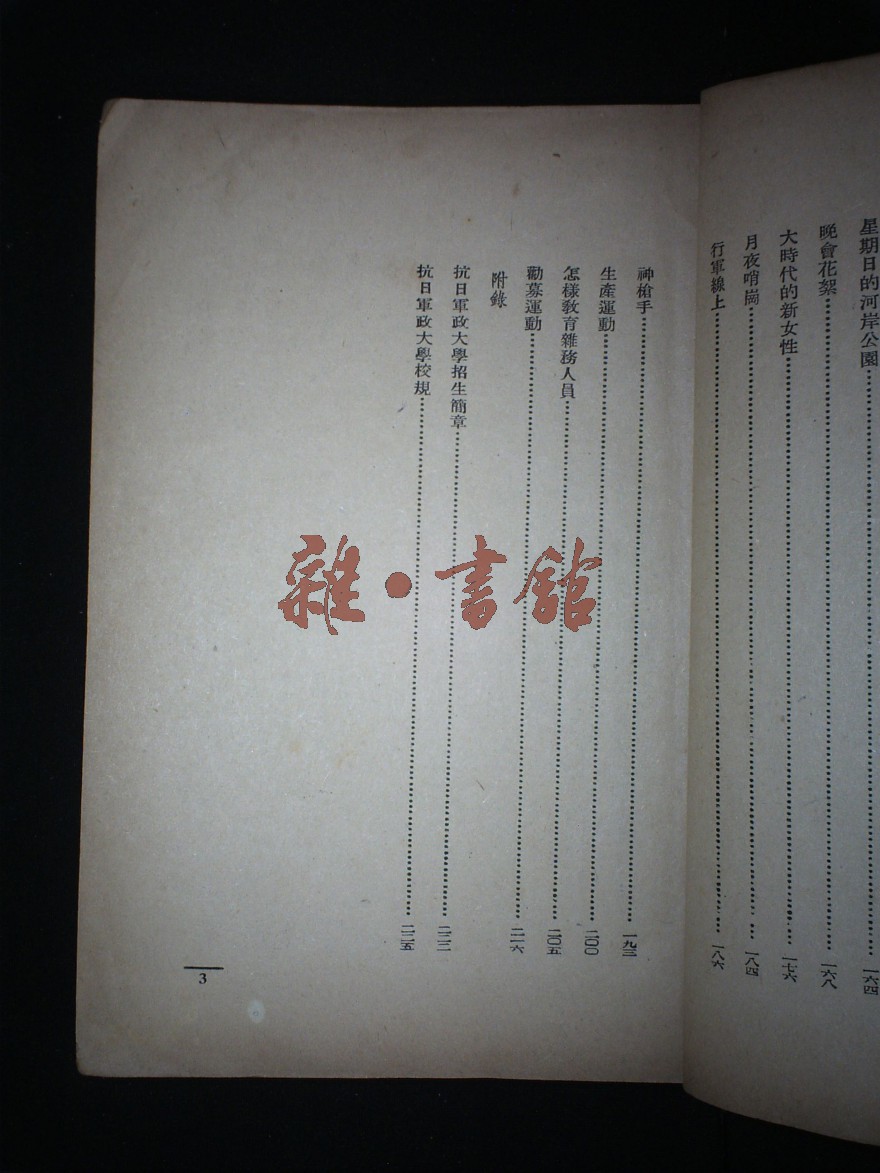 星期日的河岸公園……一六四
晚會花絮……一六八
大時代的新女性……一七六
月夜哨崗……一八四
行軍線上……一八六
神槍手……一九三
生產運動……二〇〇
怎樣教育雜務人員……二〇五
勸募運動……二一六
附錄
抗日軍政大學招生簡章……二二二
抗日軍政大學校規……二二五
3
雜·書館